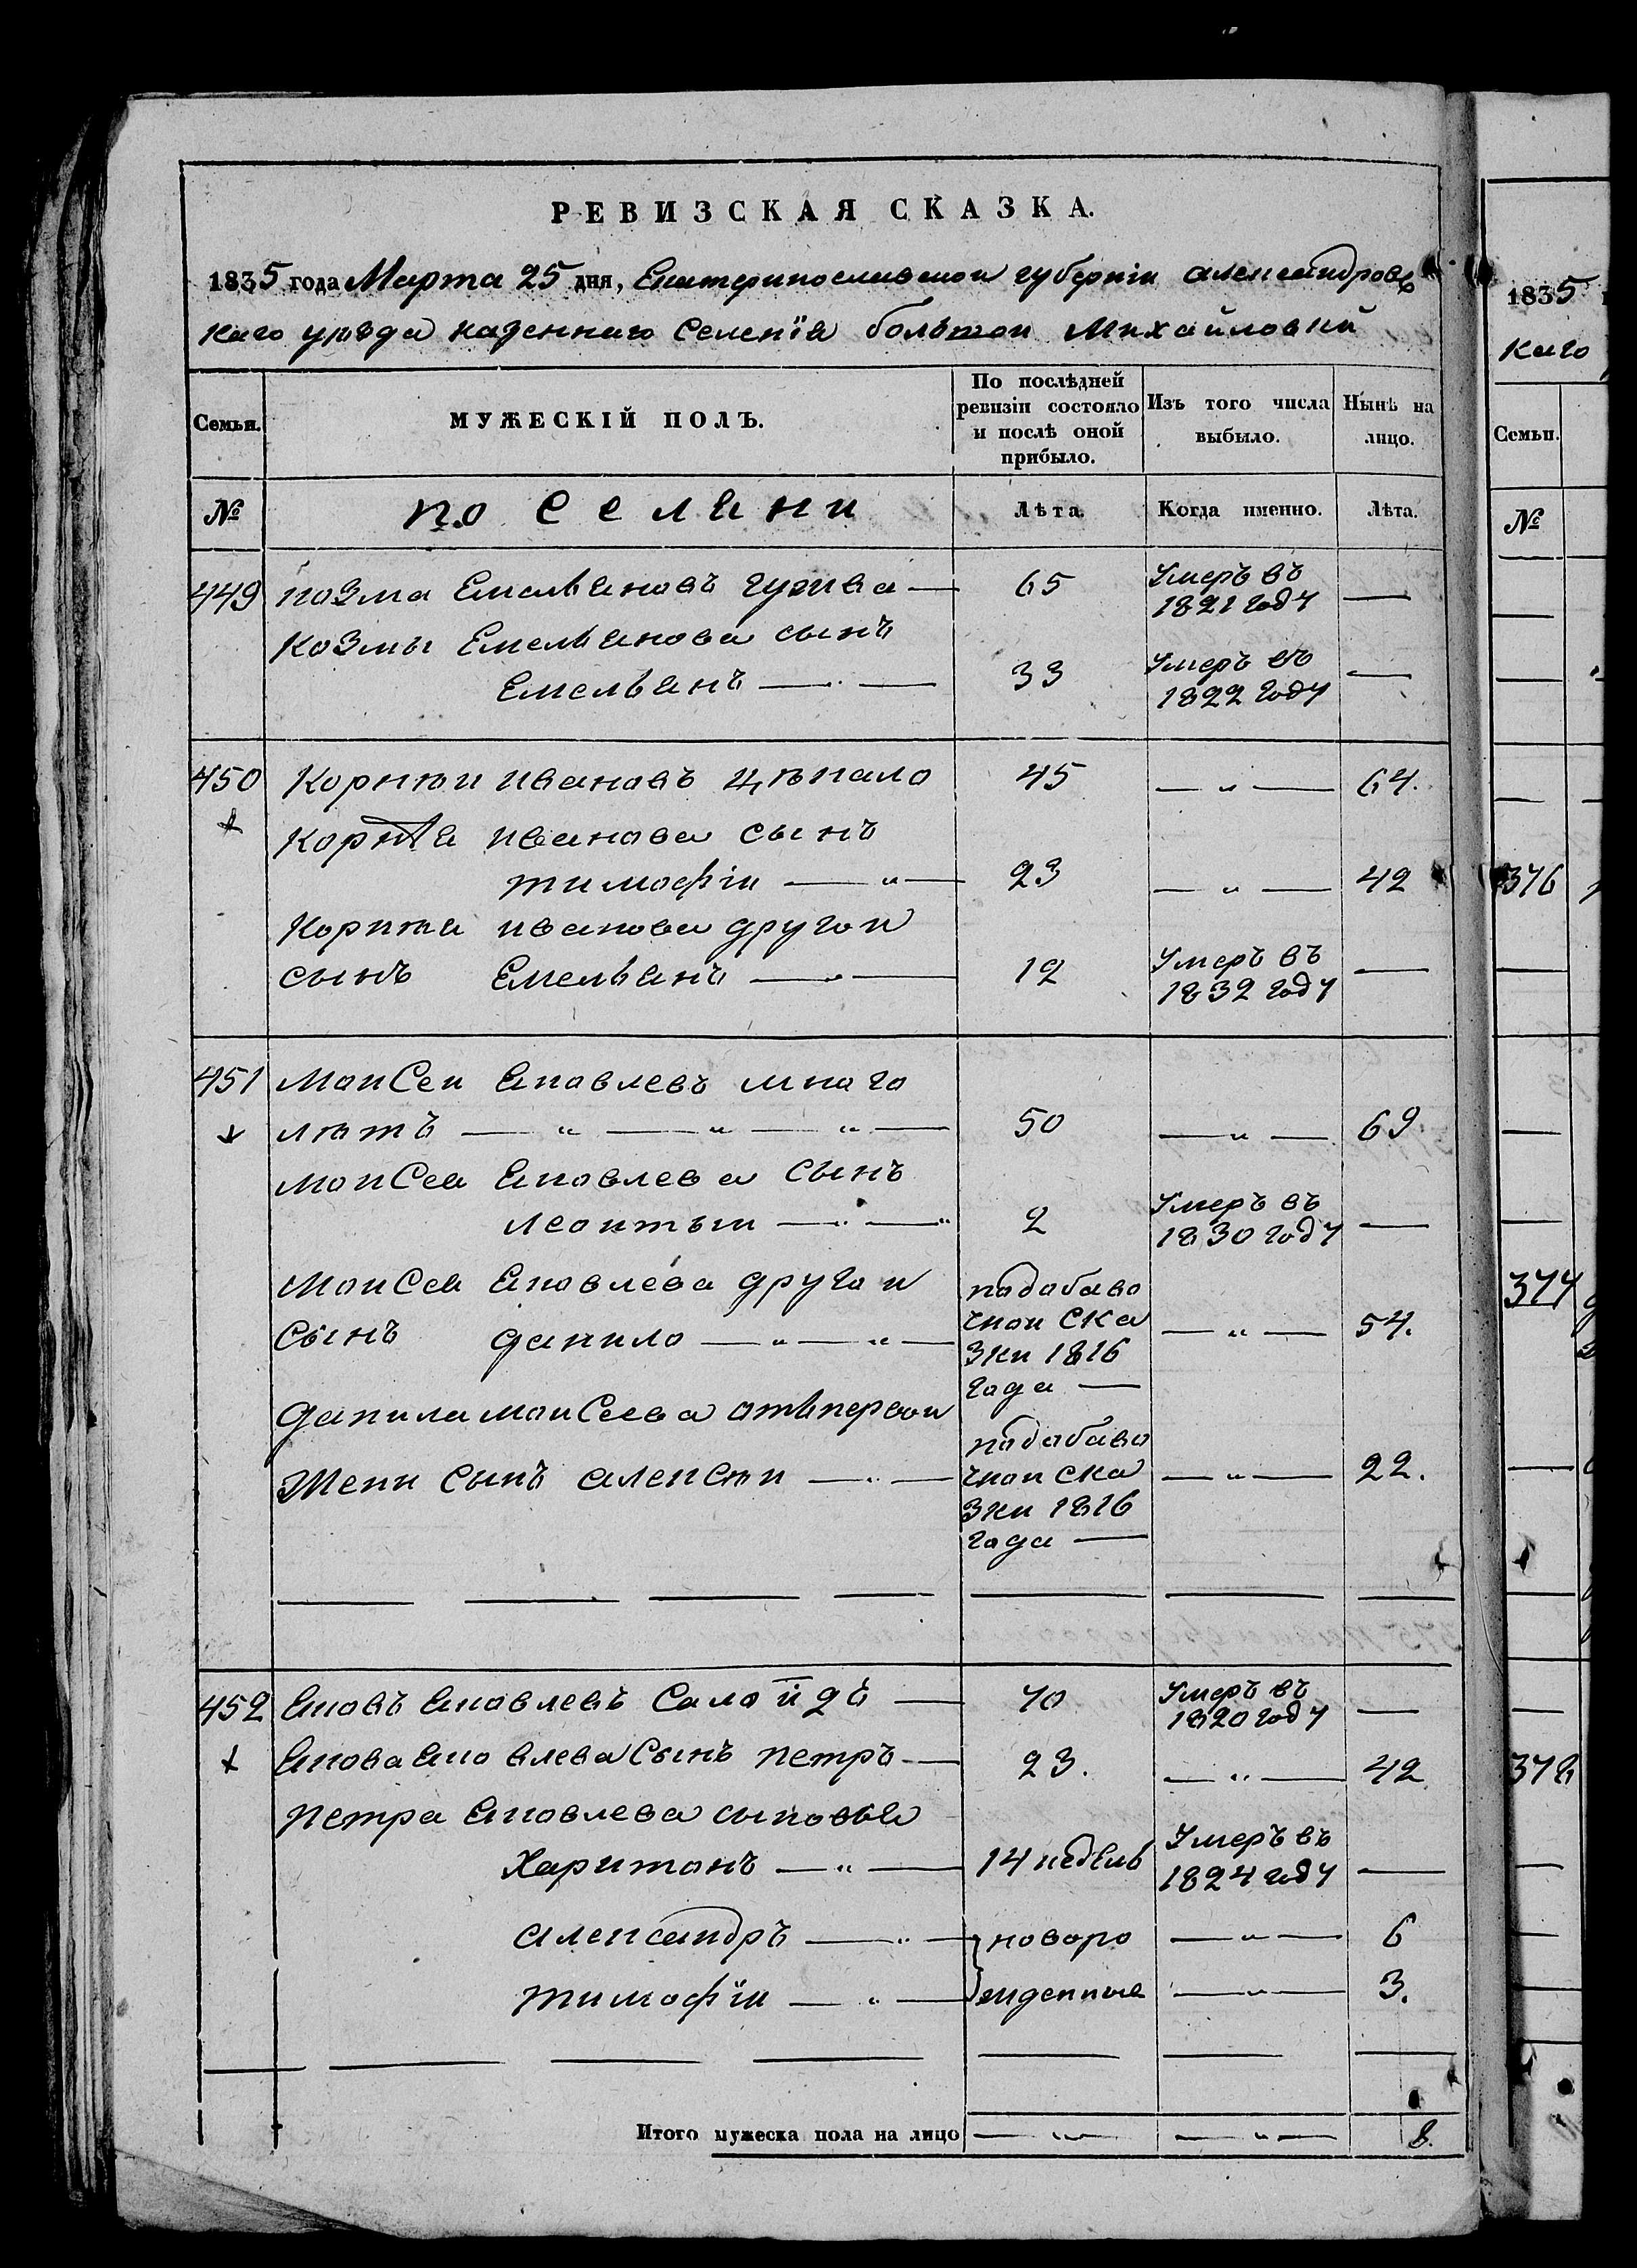 РЕВИЗСКАЯ СКАЗКА.
1835 года Марта 25 дня, Екатеринославской губерніи александровс
каго уѣзда казеннаго Селенїя большой Михайловки
Семьи.
МУЖЕСКІЙ ПОЛЪ.
По послѣдней ревизіи состояло и послѣ оной прибыло.
Изъ того числа выбыло.
Нынѣ на лицо.
№
поселяни
Лѣта.
Когда именно.
Лѣта.
449 козма Емельяновъ — 65 Умеръ въ 1821 году —
Козмы Емельянова сынъ
Емельянъ — 33 Умеръ въ 1822 году —
450 Корнѣй ивановъ 45 — „ — 64.
Корнѣя иванова сынъ
тимофіи — „ — 23 — „ — 42
Корнѣя иванова другой
сынъ Емельянъ — 12 Умеръ въ 1832 году —
451 Моисей яковлевъ много
лѣтъ — „ — „ — „ — 50 — „ — 69
Моисея яковлева сынъ
леонтьи — „ — „ 2 Умеръ въ 1830 году —
Моисея яковлева другой
сынъ данило — „ — „ — подобаво
чной Ска
зки 1816
года — — „ — 54.
данила моисеева отъпервой
жени сынъ алексѣи — подобаво
чной ска
зки 1816
года — — „ — 22.
452 яковъ яковлевъ — 70 Умеръ въ 1820 году —
якова яковлева сынъ петръ — 23. — „ — 42
петра яковлева сыновья
Харитонъ — „ — 14 недель Умеръ въ 1824 году —
александръ — „ — новоро — „ — 6
тимофїи — „ — жденные — „ — 3.
Итого мужеска пола на лицо — „ — — „ — 8.
1835
каго
Семьи.
№
376
377
378